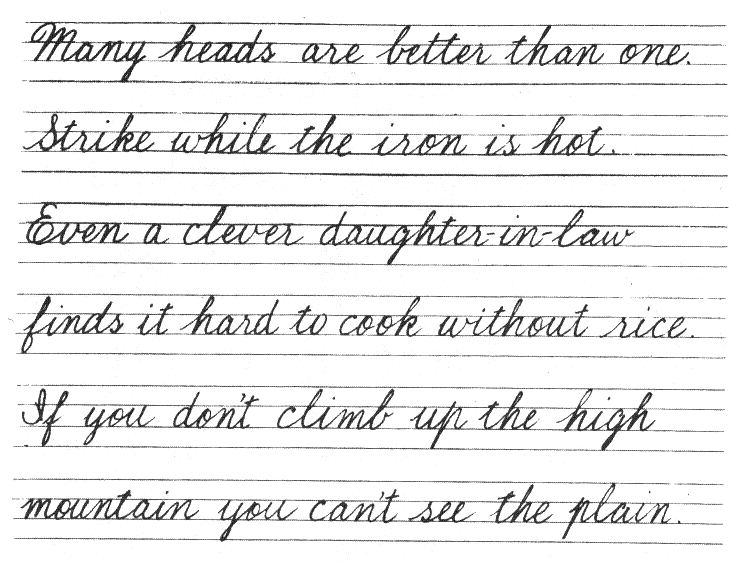 Many heads are better than one.
Strike while the iron is hot.
Even a clever daughter-in-law
finds it hard to cook without rice.
If you don't climb up the high
mountain you can't see the plain.